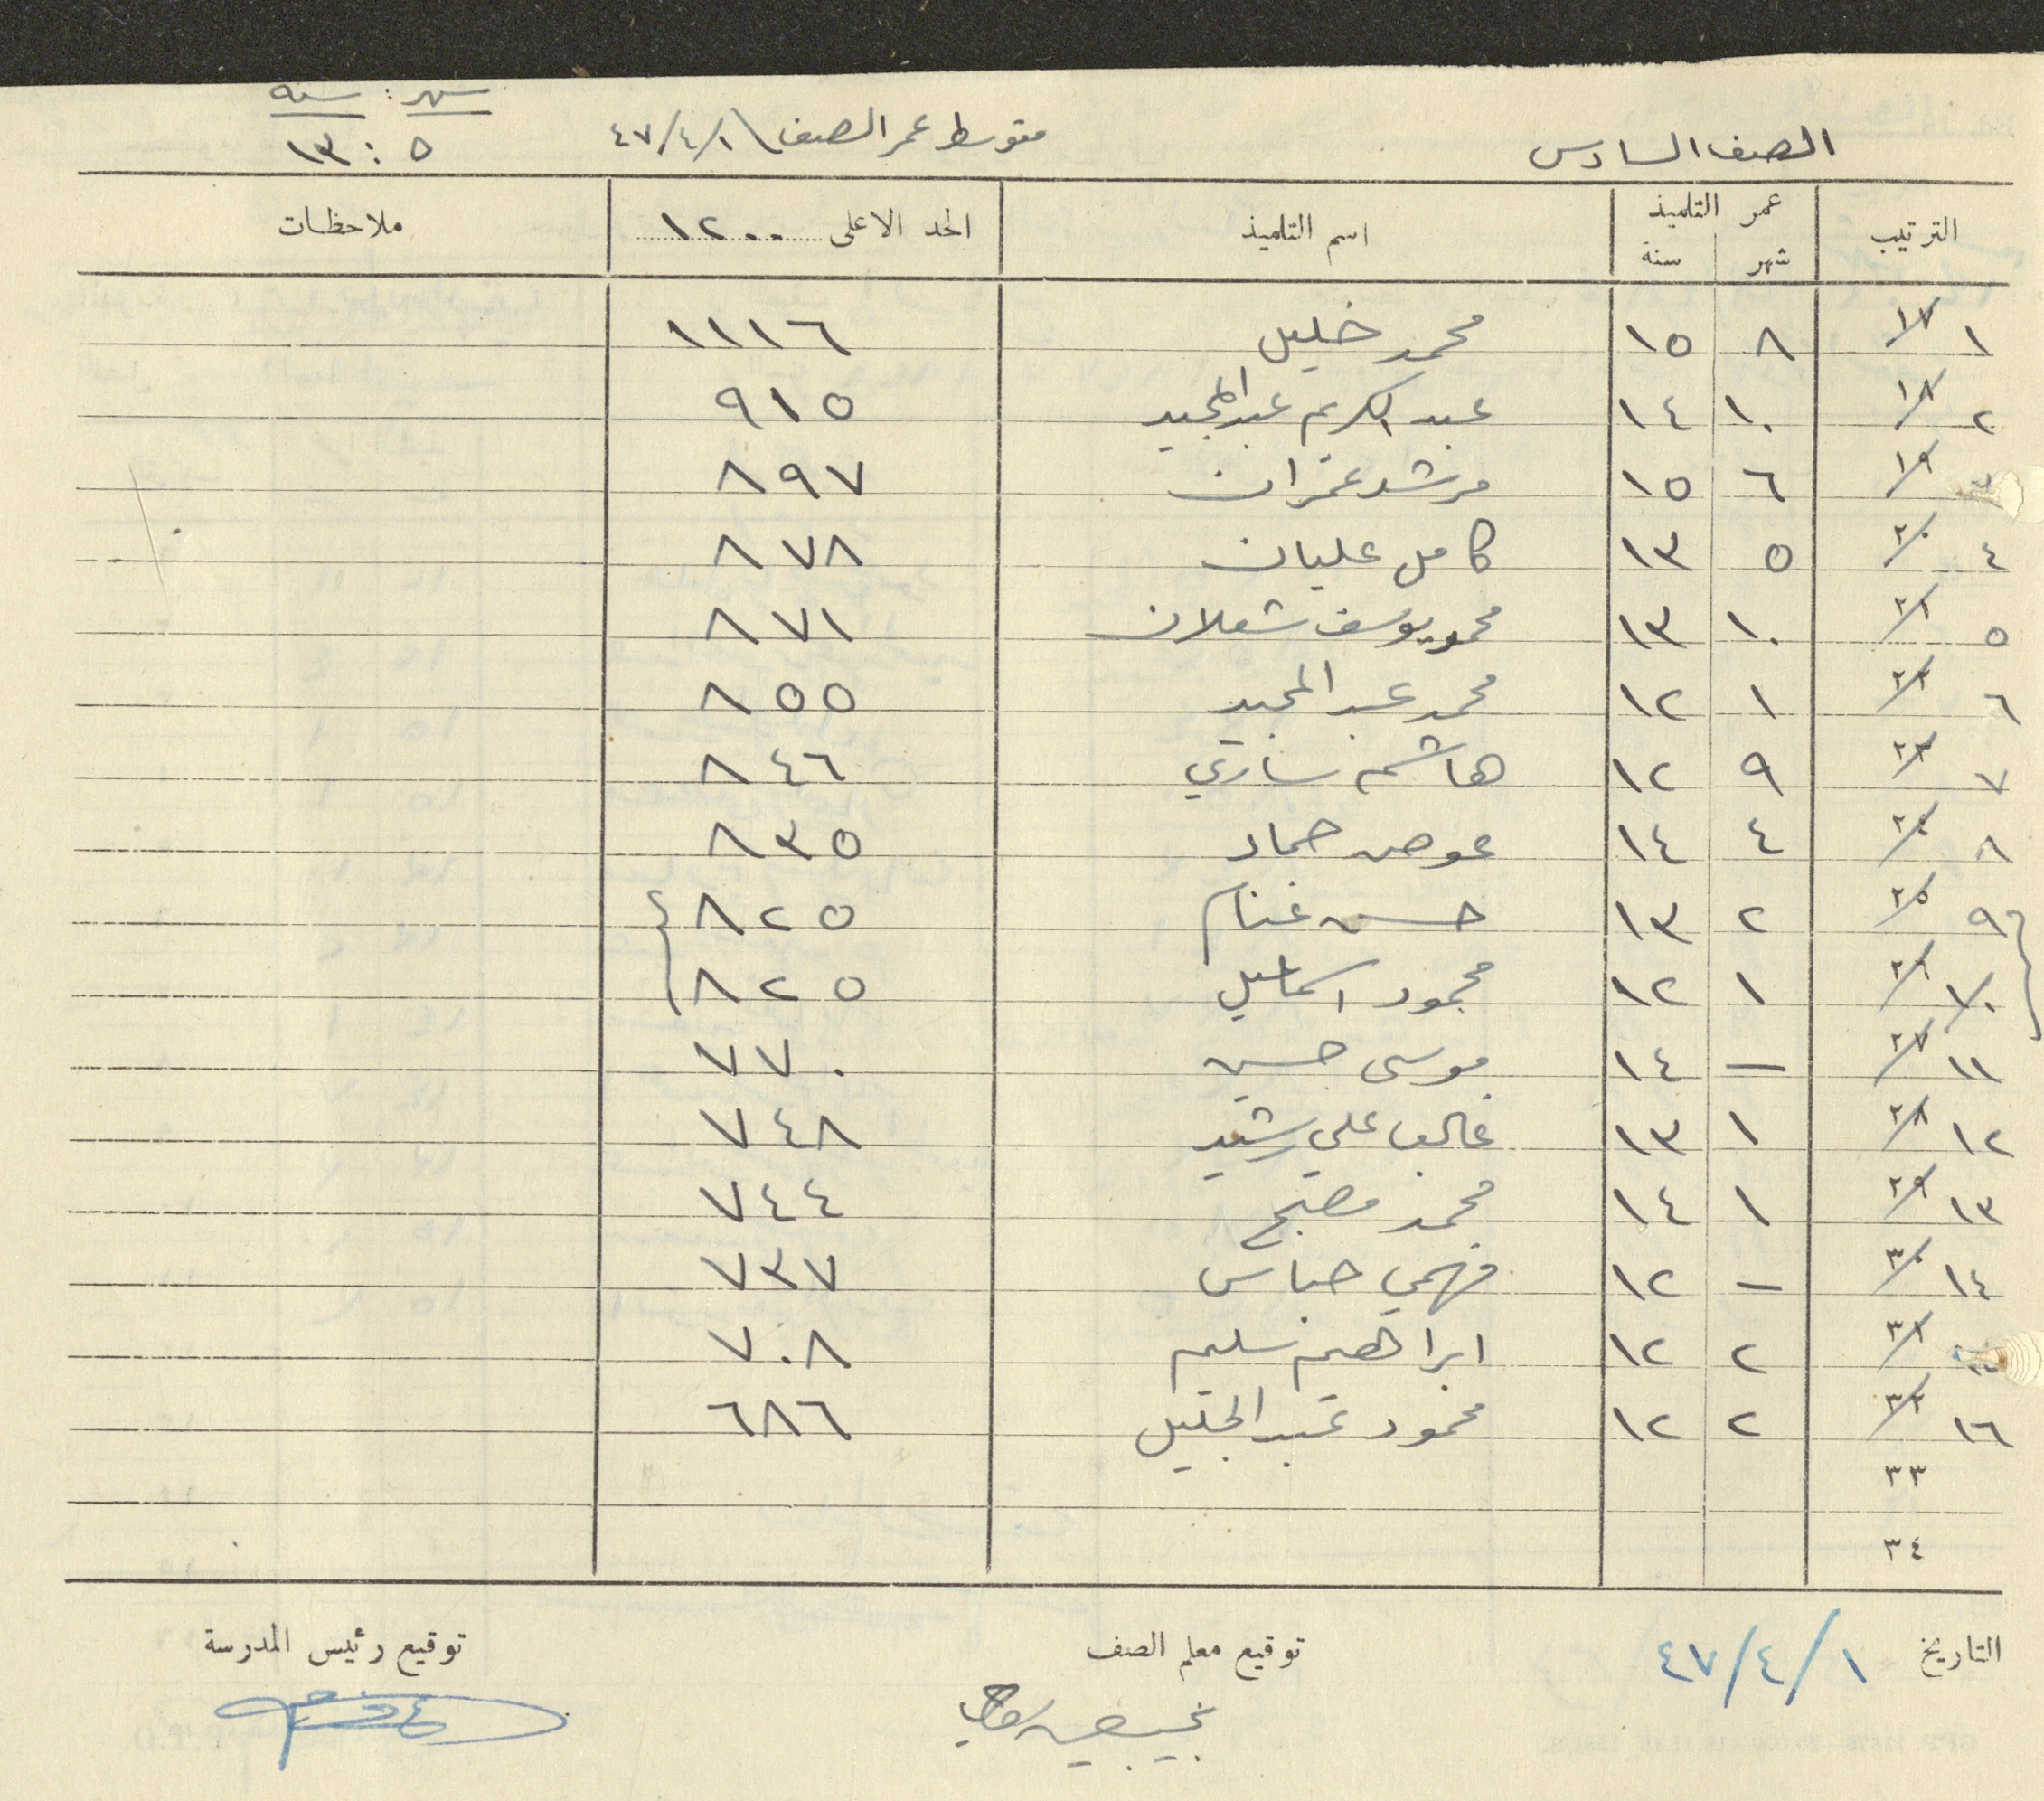 الصف السادس متوسط عمر الصف ١/٤/٤٧ شهر : سنة
٥ : ١٣
الترتيب عمر التلميذ اسم التلميذ الحد الاعلى ١٢٠٠ ملاحظات
شهر سنة
١ ١٧ ٨ ١٥ محمد خليل ١١١٦
٢ ١٨ ١٠ ١٤ عبد الكريم عبد المجيد ٩١٥
١٩ ٦ ١٥ مرشد عمران ٨٩٧
٤ ٢٠ ٥ ١٣ كامل عليان ٨٧٨
٥ ٢١ ١٠ ١٣ محمود يوسف شعلان ٨٧١
٦ ٢٢ ١ ١٢ محمد عبد المجيد ٨٥٥
٧ ٢٣ ٩ ١٢ هاشم ساري ٨٤٦
٨ ٢٤ ٤ ١٤ عوض حماد ٨٣٥
٩ ٢٥ ٢ ١٣ حسن غنام ٨٢٥
١٠ ٢٦ ١ ١٢ محمود اسماعيل ٨٢٥
١١ ٢٧ — ١٤ موسى حسين ٧٧٠
١٢ ٢٨ ١ ١٣ غالب علي رشيد ٧٤٨
١٣ ٢٩ ١ ١٤ محمد مصبح ٧٤٤
١٤ ٣٠ — ١٢ فهمي عباس ٧٣٧
٣١ ٢ ١٢ ابراهيم سليم ٧٠٨
١٦ ٣٢ ٢ ١٢ محمود عبد الجليل ٦٨٦
٣٣
٣٤
التاريخ ١/٤/٤٧ توقيع معلم الصف توقيع رئيس المدرسة